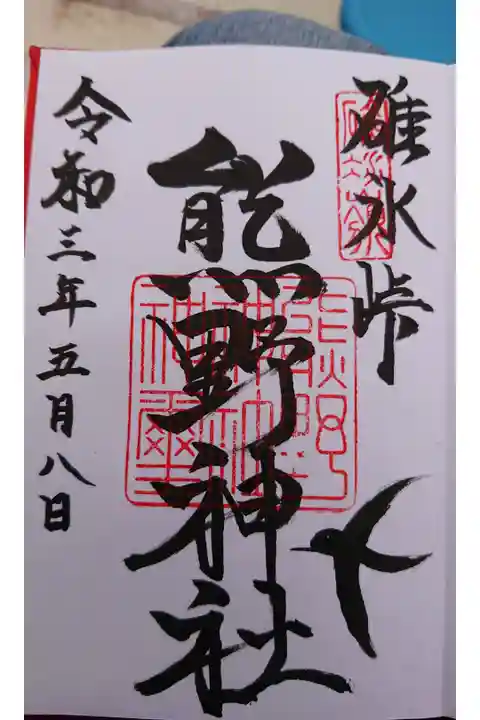 碓水峠
熊野神社
令和三年五月八日